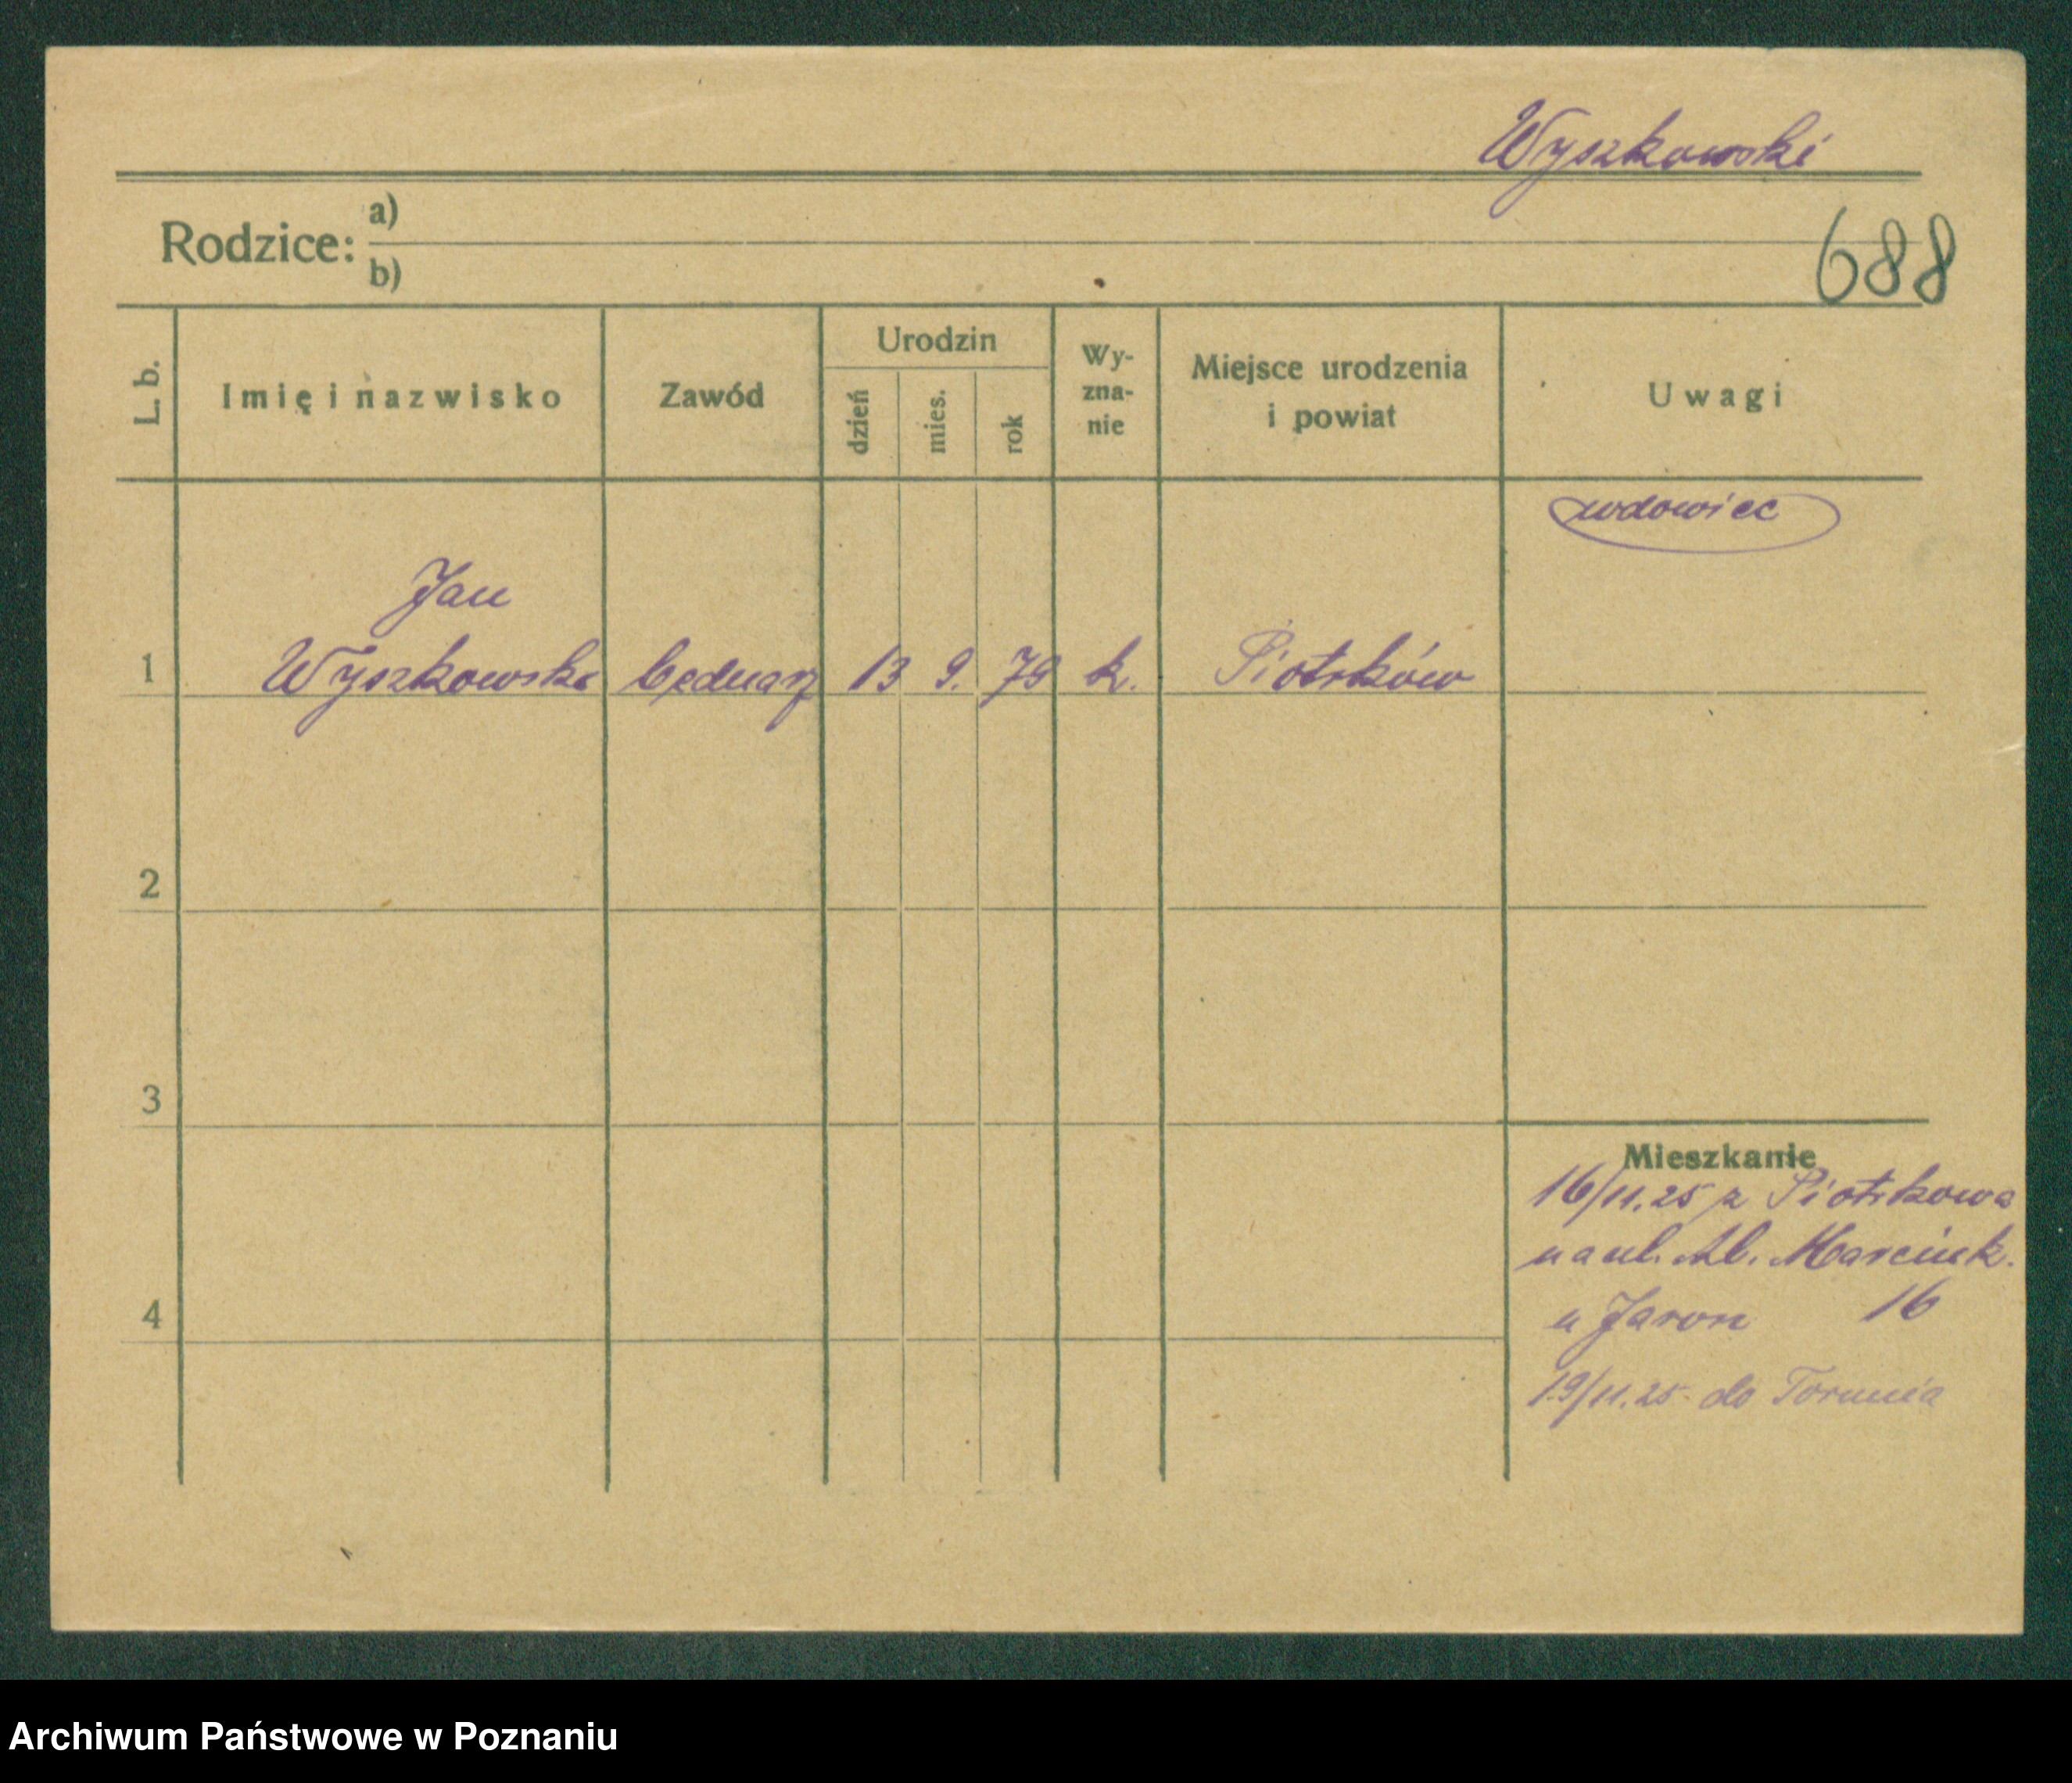 Wyszkowski
Rodzice: a)
b)
688
L. b.
Imię i nazwisko
Zawód
Urodzin
dzień
mies.
rok
Wy-
zna-
nie
Miejsce urodzenia
i powiat
Uwagi
wdowiec
Jan
1 Wyszkowski bednarz 13 9. 79 k. Piotrków
2
3
4
Mieszkanie
16/11.25 z Piotrkowa
na ul. Al. Marcink.
u Jaron 16
19/11.25 do Torunia
Archiwum Państwowe w Poznaniu